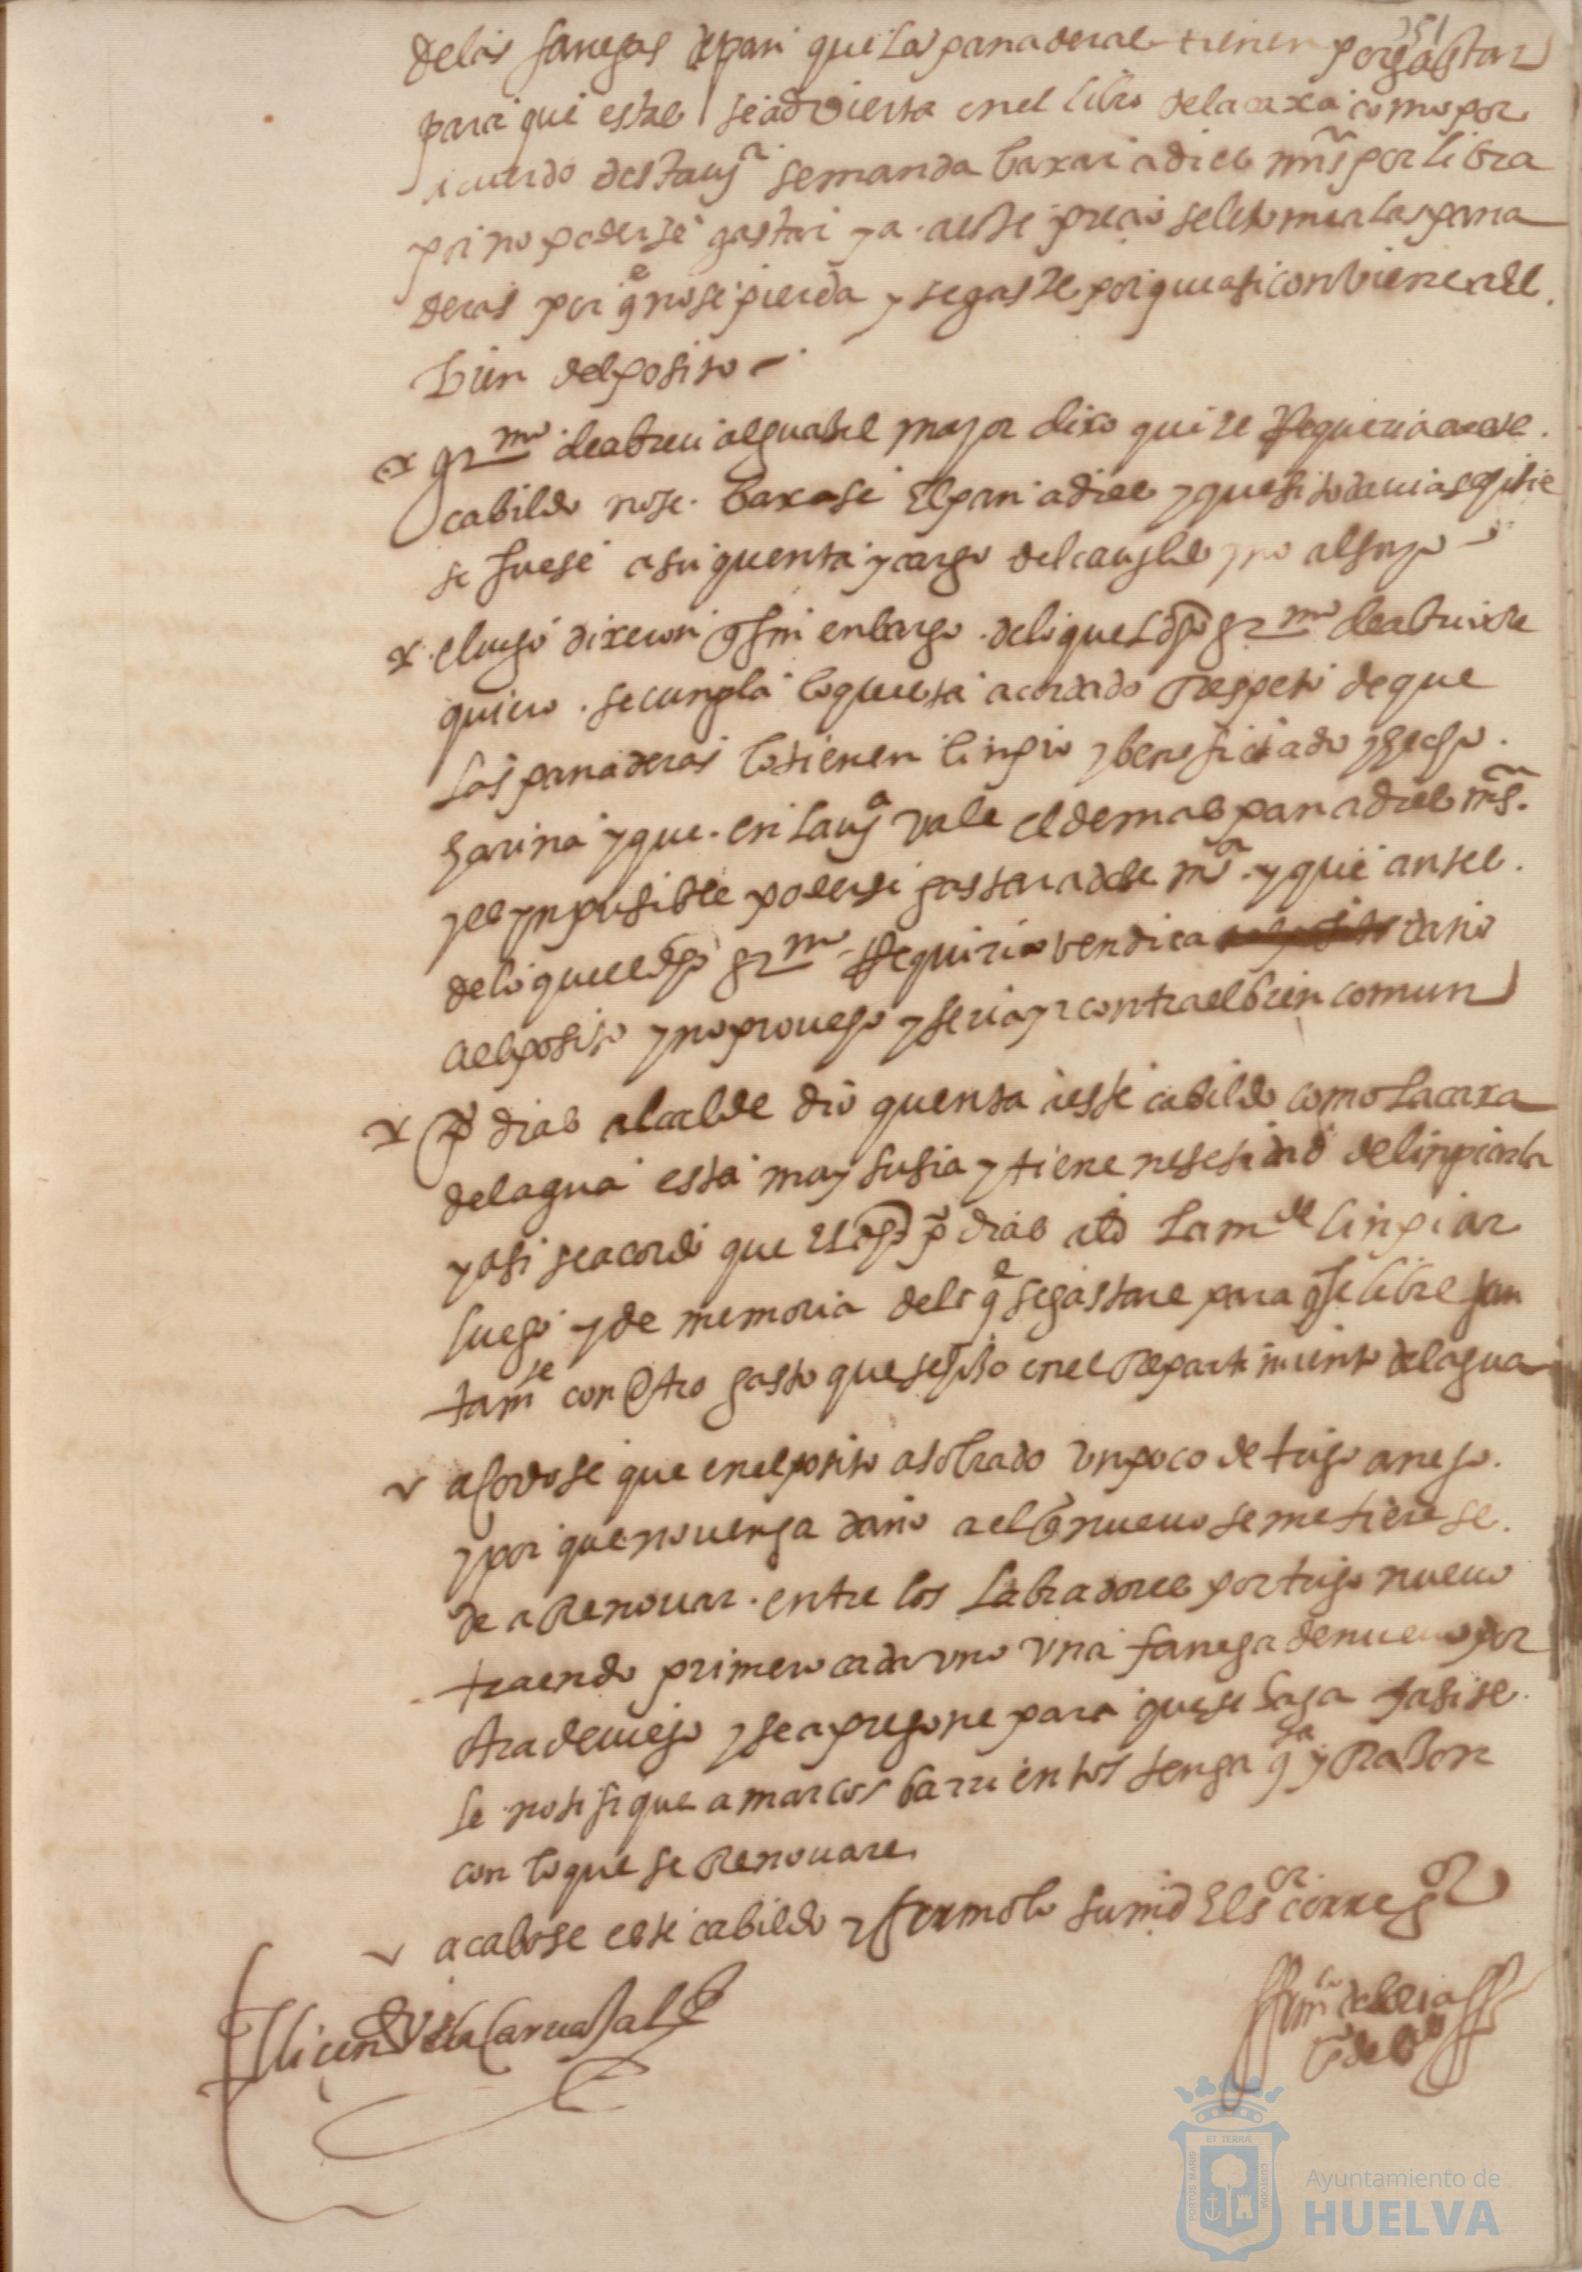 251
de las fanegas de pan que las panaderas tienen por gastar
para que estas se advierta en el libro de la caxa como por
acuerdo desta uyª se manda baxar a dies mrs por libra
por no poderse gastar ya a este precio se le tomen las pana
deras por qe no se pierda y se gaste porque asi conbiene a el
bien del posito
grmo de abreu alguasil mayor dixo que se Requeria a este
cabildo no se baxase El pan a dies y que si todavia se hisie
se fuese a su quenta y cargo del cauildo y no al suyo
e luego dixeron q sin enbargo de lo que el dho grmo de abreu Re
quirio se cunpla lo questa acordado Respeto de que
las panaderas lo tienen linpio y beneficiado y hecho
harina y que en la uyª vale el demas pan a dies mrs
y es ynposible poderse gastar a dose mrs y que antes
de lo que el dho grmo Requirio vendria dano
a el posito y no prouecho y seria yr contra el bien comun
po dias alcalde dio quenta a este cabildo como la caxa
del agua esta muy susia y tiene nesesidad de linpiarla
y asi se acordo que El dho po dias alld la mde linpiar
luego y de memoria de lo qe se gastare para q se libre jun
tamte con Otro gasto que se hiso en el Repartimiento del agua
acordose que en el posito a sobrado un poco de trigo anejo
y porque no venga dano a el q nueuo se metiere se
de a Renouar entre los labradores por trigo nueuo
traendo primero cada uno una fanega de nueuo por
otra de uiejo y se apregone para que se haga y asi se
le notifique a marcos barrientos tenga qta y Rason
con lo que se Renouare
acabose este cabildo y firmolo su md El sor corregor
El licendo Vela Caruajal
Ayuntamiento de
HUELVA
PORTUS MARIS
ET TERRÆ
CUSTODIA